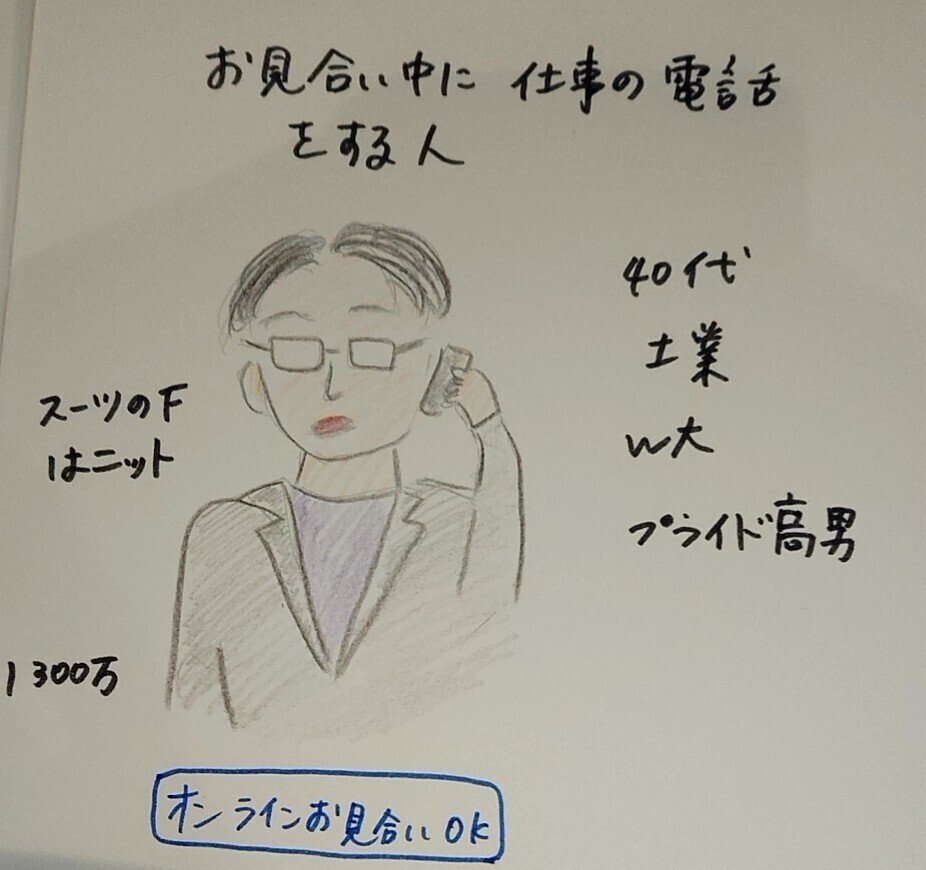 お見合い中に 仕事の電話
をする人
40代
士業
W大
プライド高男
スーツの下
はニット
1300万
オンラインお見合いOK